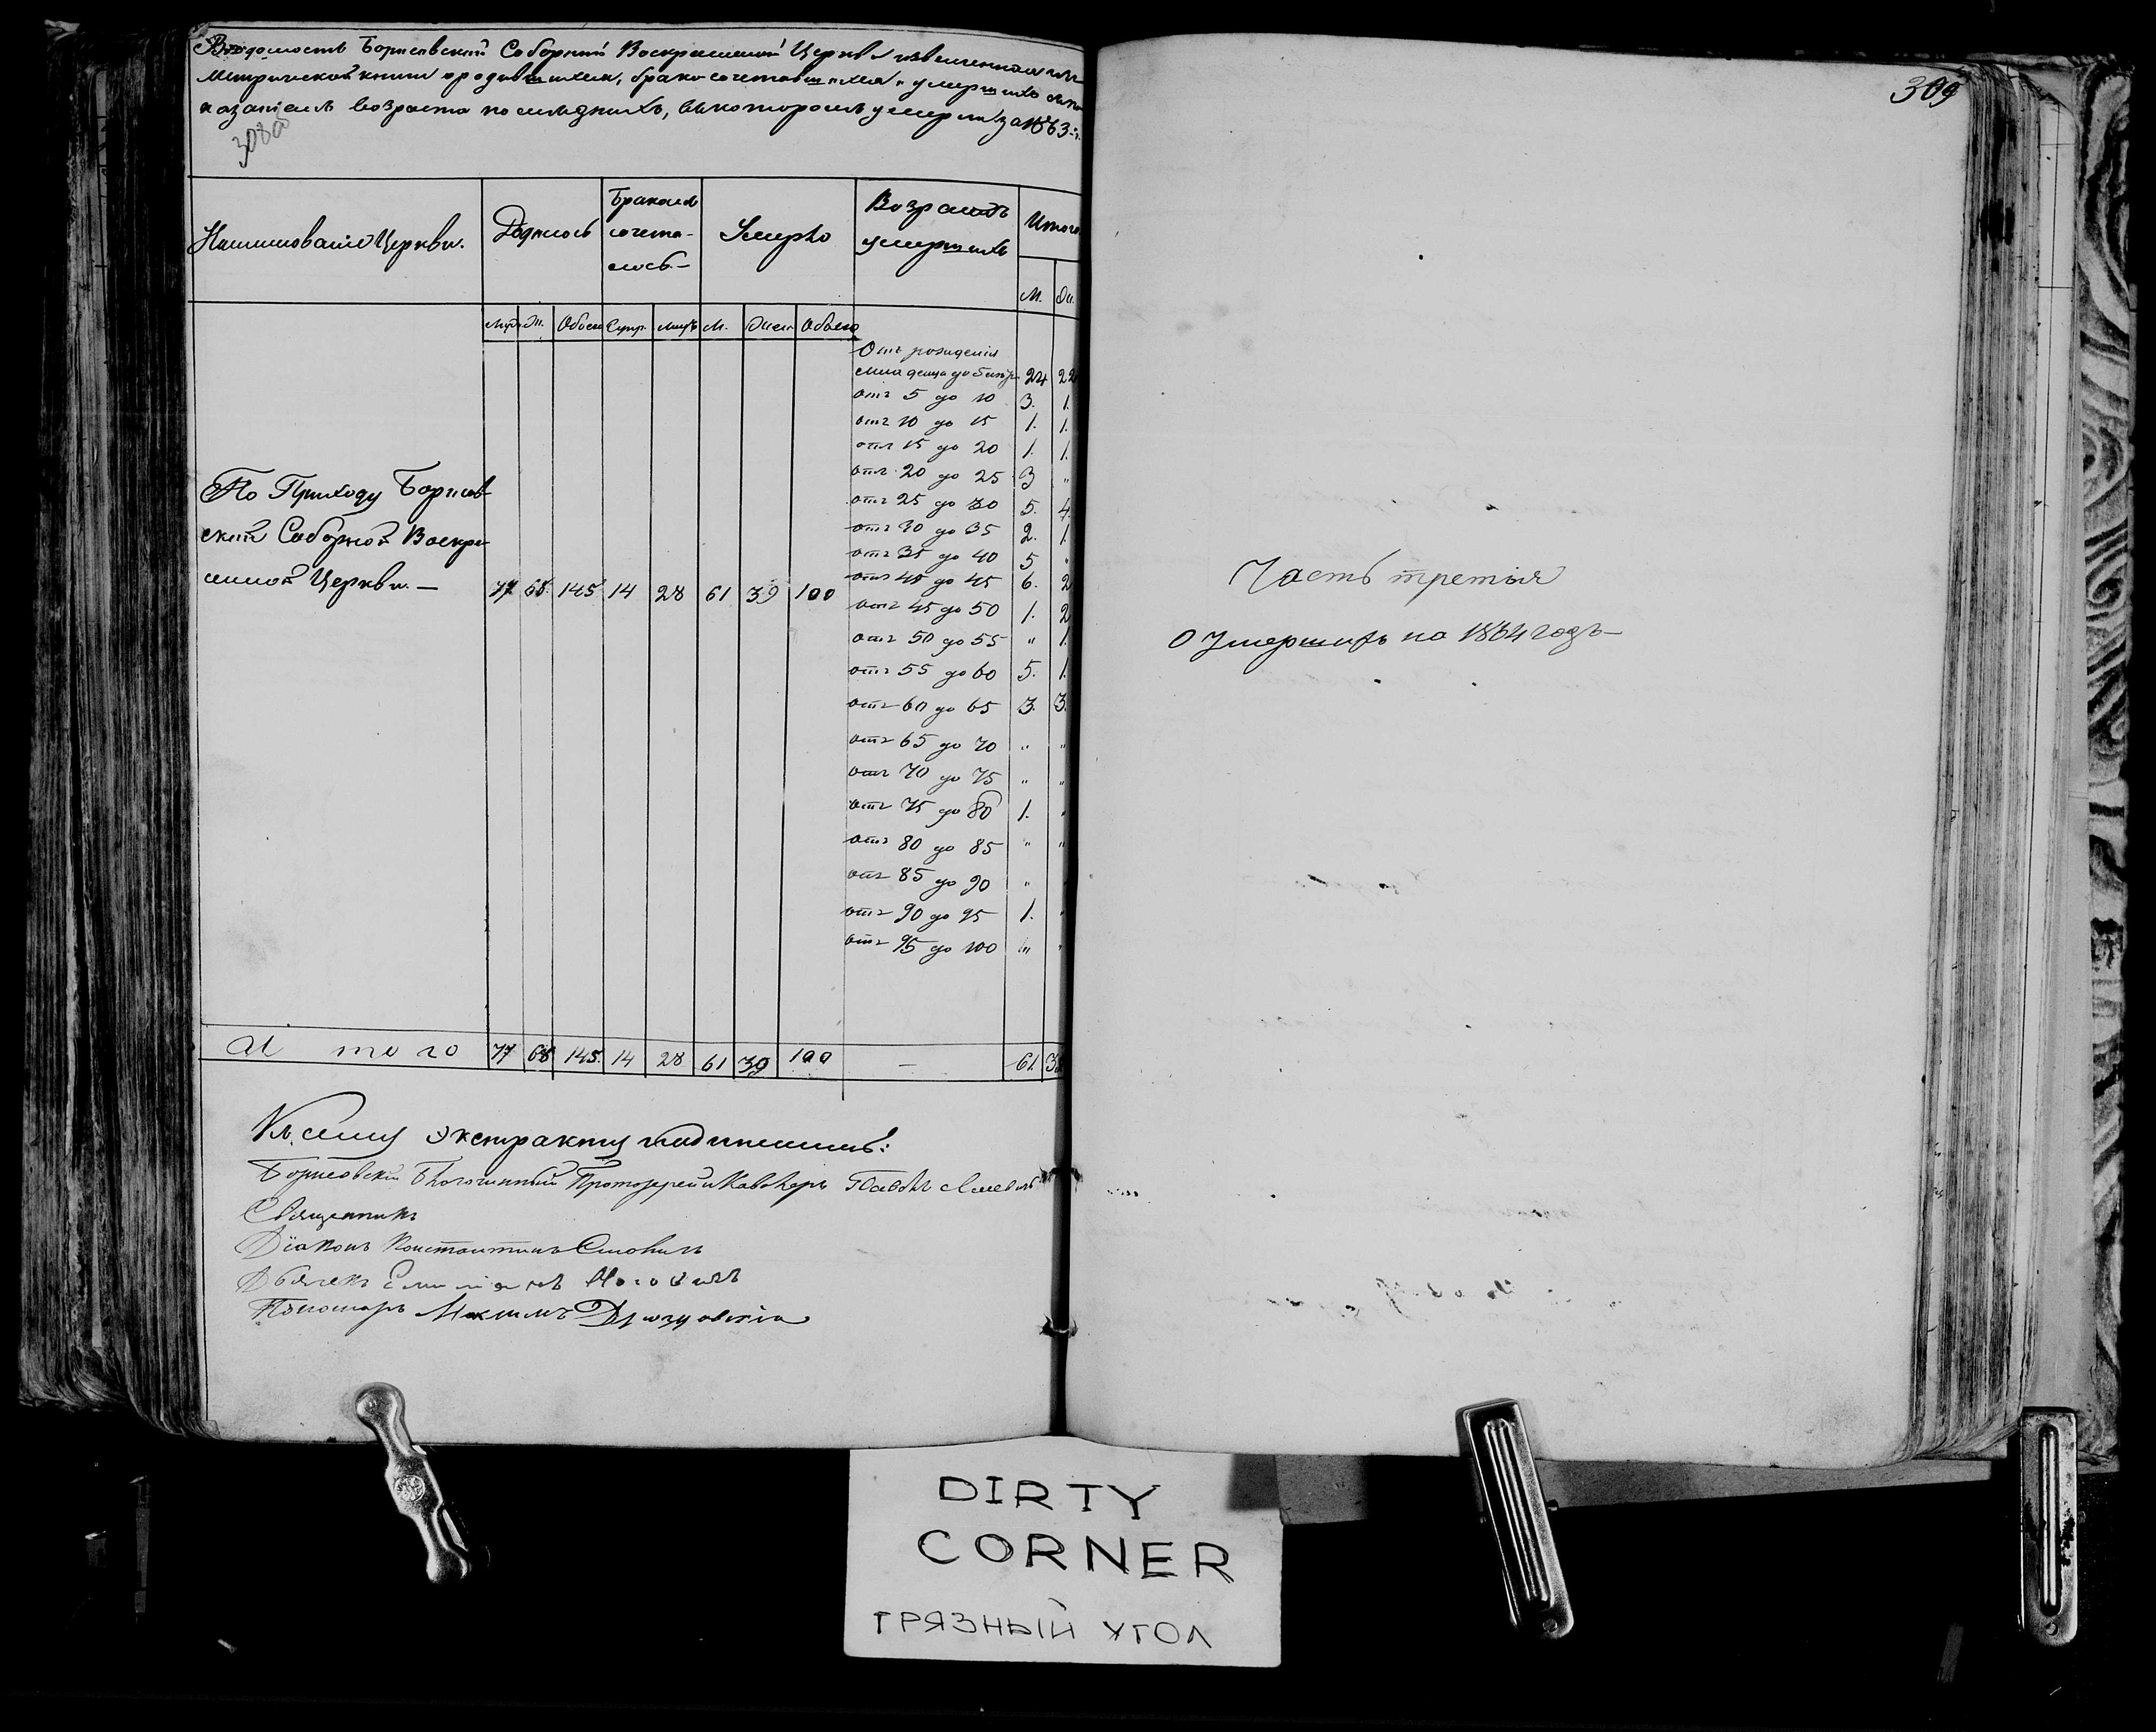 Ведомость Борисовской Соборной Воскресенской Церкви извлеченная изъ
Метрической книги о родившихся, бракосочетавшихся и умершихъ съ по-
казаніемъ возраста последнихъ, въ которомъ умерли за 1863 г.
308об
Наименованіе Церкви.
Родилось
Бракомъ
сочета-
лось
Умерло
Возрастъ
умершихъ
Итого
М. Ж.
Муж. Ж. Обоего Супр. Лицъ М. Жен. Обоего
Отъ рожденія
младенца до 5 лет 24 22
отъ 5 до 10 3. 1.
отъ 10 до 15 1. 1.
отъ 15 до 20 1. 1.
отъ 20 до 25 3 „
отъ 25 до 30 5. 4.
отъ 30 до 35 2. 1.
отъ 35 до 40 5 „
отъ 45 до 45 6. 2
отъ 45 до 50 1. 2
отъ 50 до 55 „ 1.
отъ 55 до 60 5. 1.
отъ 60 до 65 3. 3.
отъ 65 до 70 „ „
отъ 70 до 75 „ „
отъ 75 до 80 1. „
отъ 80 до 85 „ „
отъ 85 до 90 „
отъ 90 до 95 1. „
отъ 95 до 100 „ „
По Приходу Борисов-
ской Соборной Воскре-
сенской Церкви. —
77 68. 145 14 28 61 39 100
Итого 77 68 145. 14 28 61 39 100 — 61. 39
Къ сему экстракту подписались:
Борисовскій Благочинный Протоіерей и Кавалеръ Павелъ
Священникъ
Діаконъ Константинъ
Дьячекъ Емиліанъ
Пономарь Максимъ
309
Часть третья
О умершихъ на 1864 годъ —
DIRTY
CORNER
ГРЯЗНЫЙ УГОЛ